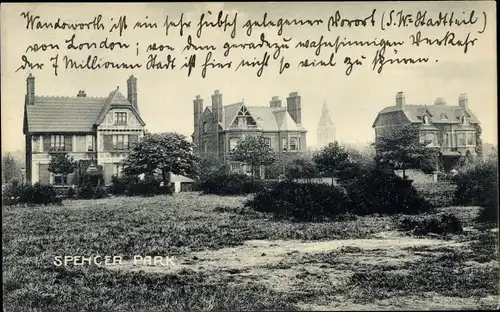 Wandsworth ist ein sehr hübsch gelegener Vorort (S.W-Stadtteil)
von London; von dem geradezu wahnsinnigen Verkehr
der 7 Millionen Stadt ist hier nicht so viel zu spüren.
SPENCER PARK